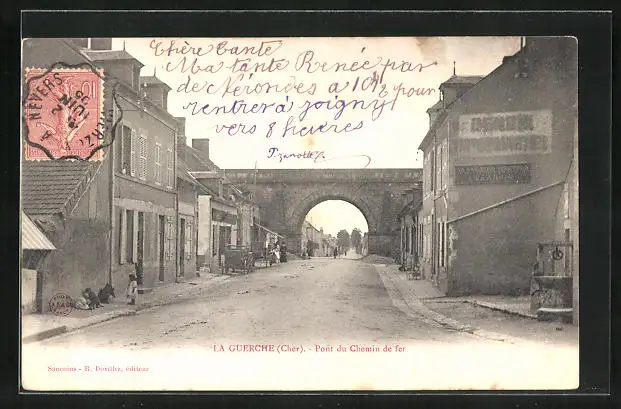 Chère Tante
Ma tante Renée par
de Nérondes a 10h 1/2 pour
rentrer à joigny
vers 8 heures
A NEVERS
10
LA GUERCHE (Cher). - Pont du Chemin de fer
Sancoins - R. Desvilles, éditeur